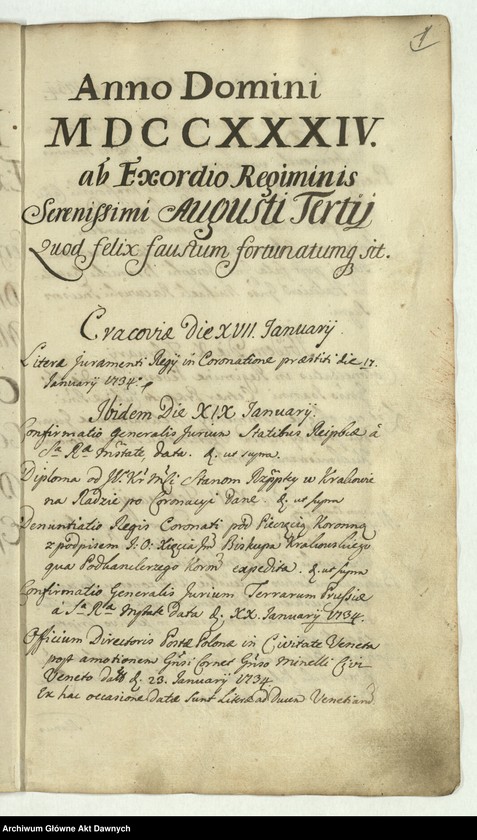 1
Anno Domini
MDCCXXXIV.
ab Exordio Regiminis
Serenissimi Augusti Tertij
Quod felix faustum fortunatumq sit.
Cracoviæ Die XVII. Januarij
Literæ Juramenti Regij in Coronatione præstiti die 17.
Januarij 1734.
Ibidem Die XIX Januarij.
Confirmatio Generalis Jurium Statibus Reipblcæ à
Sa Ra Mstate data. &. ut supra.
Diploma od JKr Mści Stanom Rzpptey w Krakowie
na Radzie po Coronacyi Dane. & ut supra
Denuntiatio Regis Coronati pod Pieczęcią Koronną
z podpisem J: O: Xięcia Jm Biskupa Krakowskiego
qua Podkanclerzego Korm expedita. &. ut supra
Confirmatio Generalis Jurium Terrarum Prussiæ
à Sa Ra Mstate Data &. XX. Januarij 1734.
Officium Directoris Postæ Polonæ in Civitate Veneta
post amotionem Gnsi Cornet Gnso Minelli Civi
Veneto datū &. 23. Januarij 1734
Ex hac occasione datæ sunt Literæ ad Ducem
Archiwum Główne Akt Dawnych